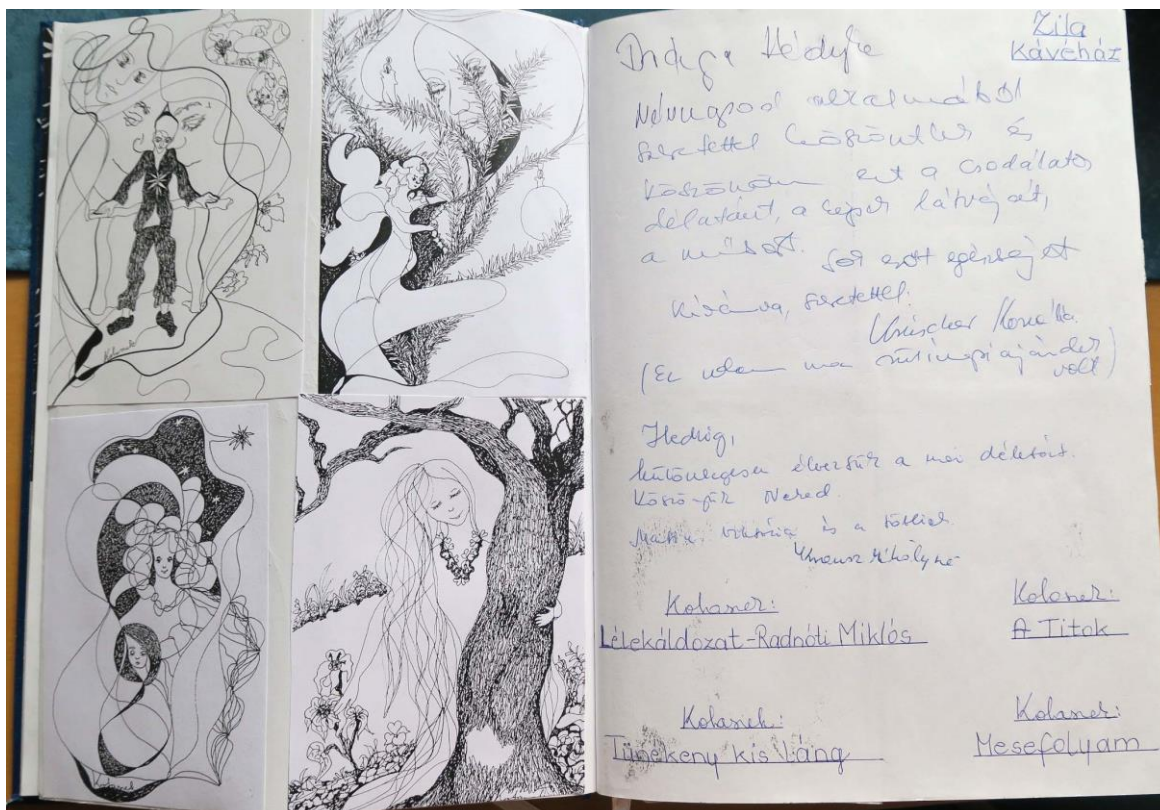 Zila
Kávéház
Drága Hédike
Névnapod alkalmából
szeretettel köszöntlek és
köszönöm ezt a csodálatos
délutánt, a képek látványát,
a műsort. Jó egészséget
kívánva, szeretettel:
(Ez nekem ma volt)
Hedvig,
különlegesen élveztük a mai délutánt.
Köszönjük Neked.
Viktória és a többiek
Mihályné
Kolanek:
Lélekáldozat-Radnóti Miklós
Kolanek:
A Titok
Kolanek:
Tünékeny kis Láng
Kolanek:
Mesefolyam
Kolanek
Kolanek